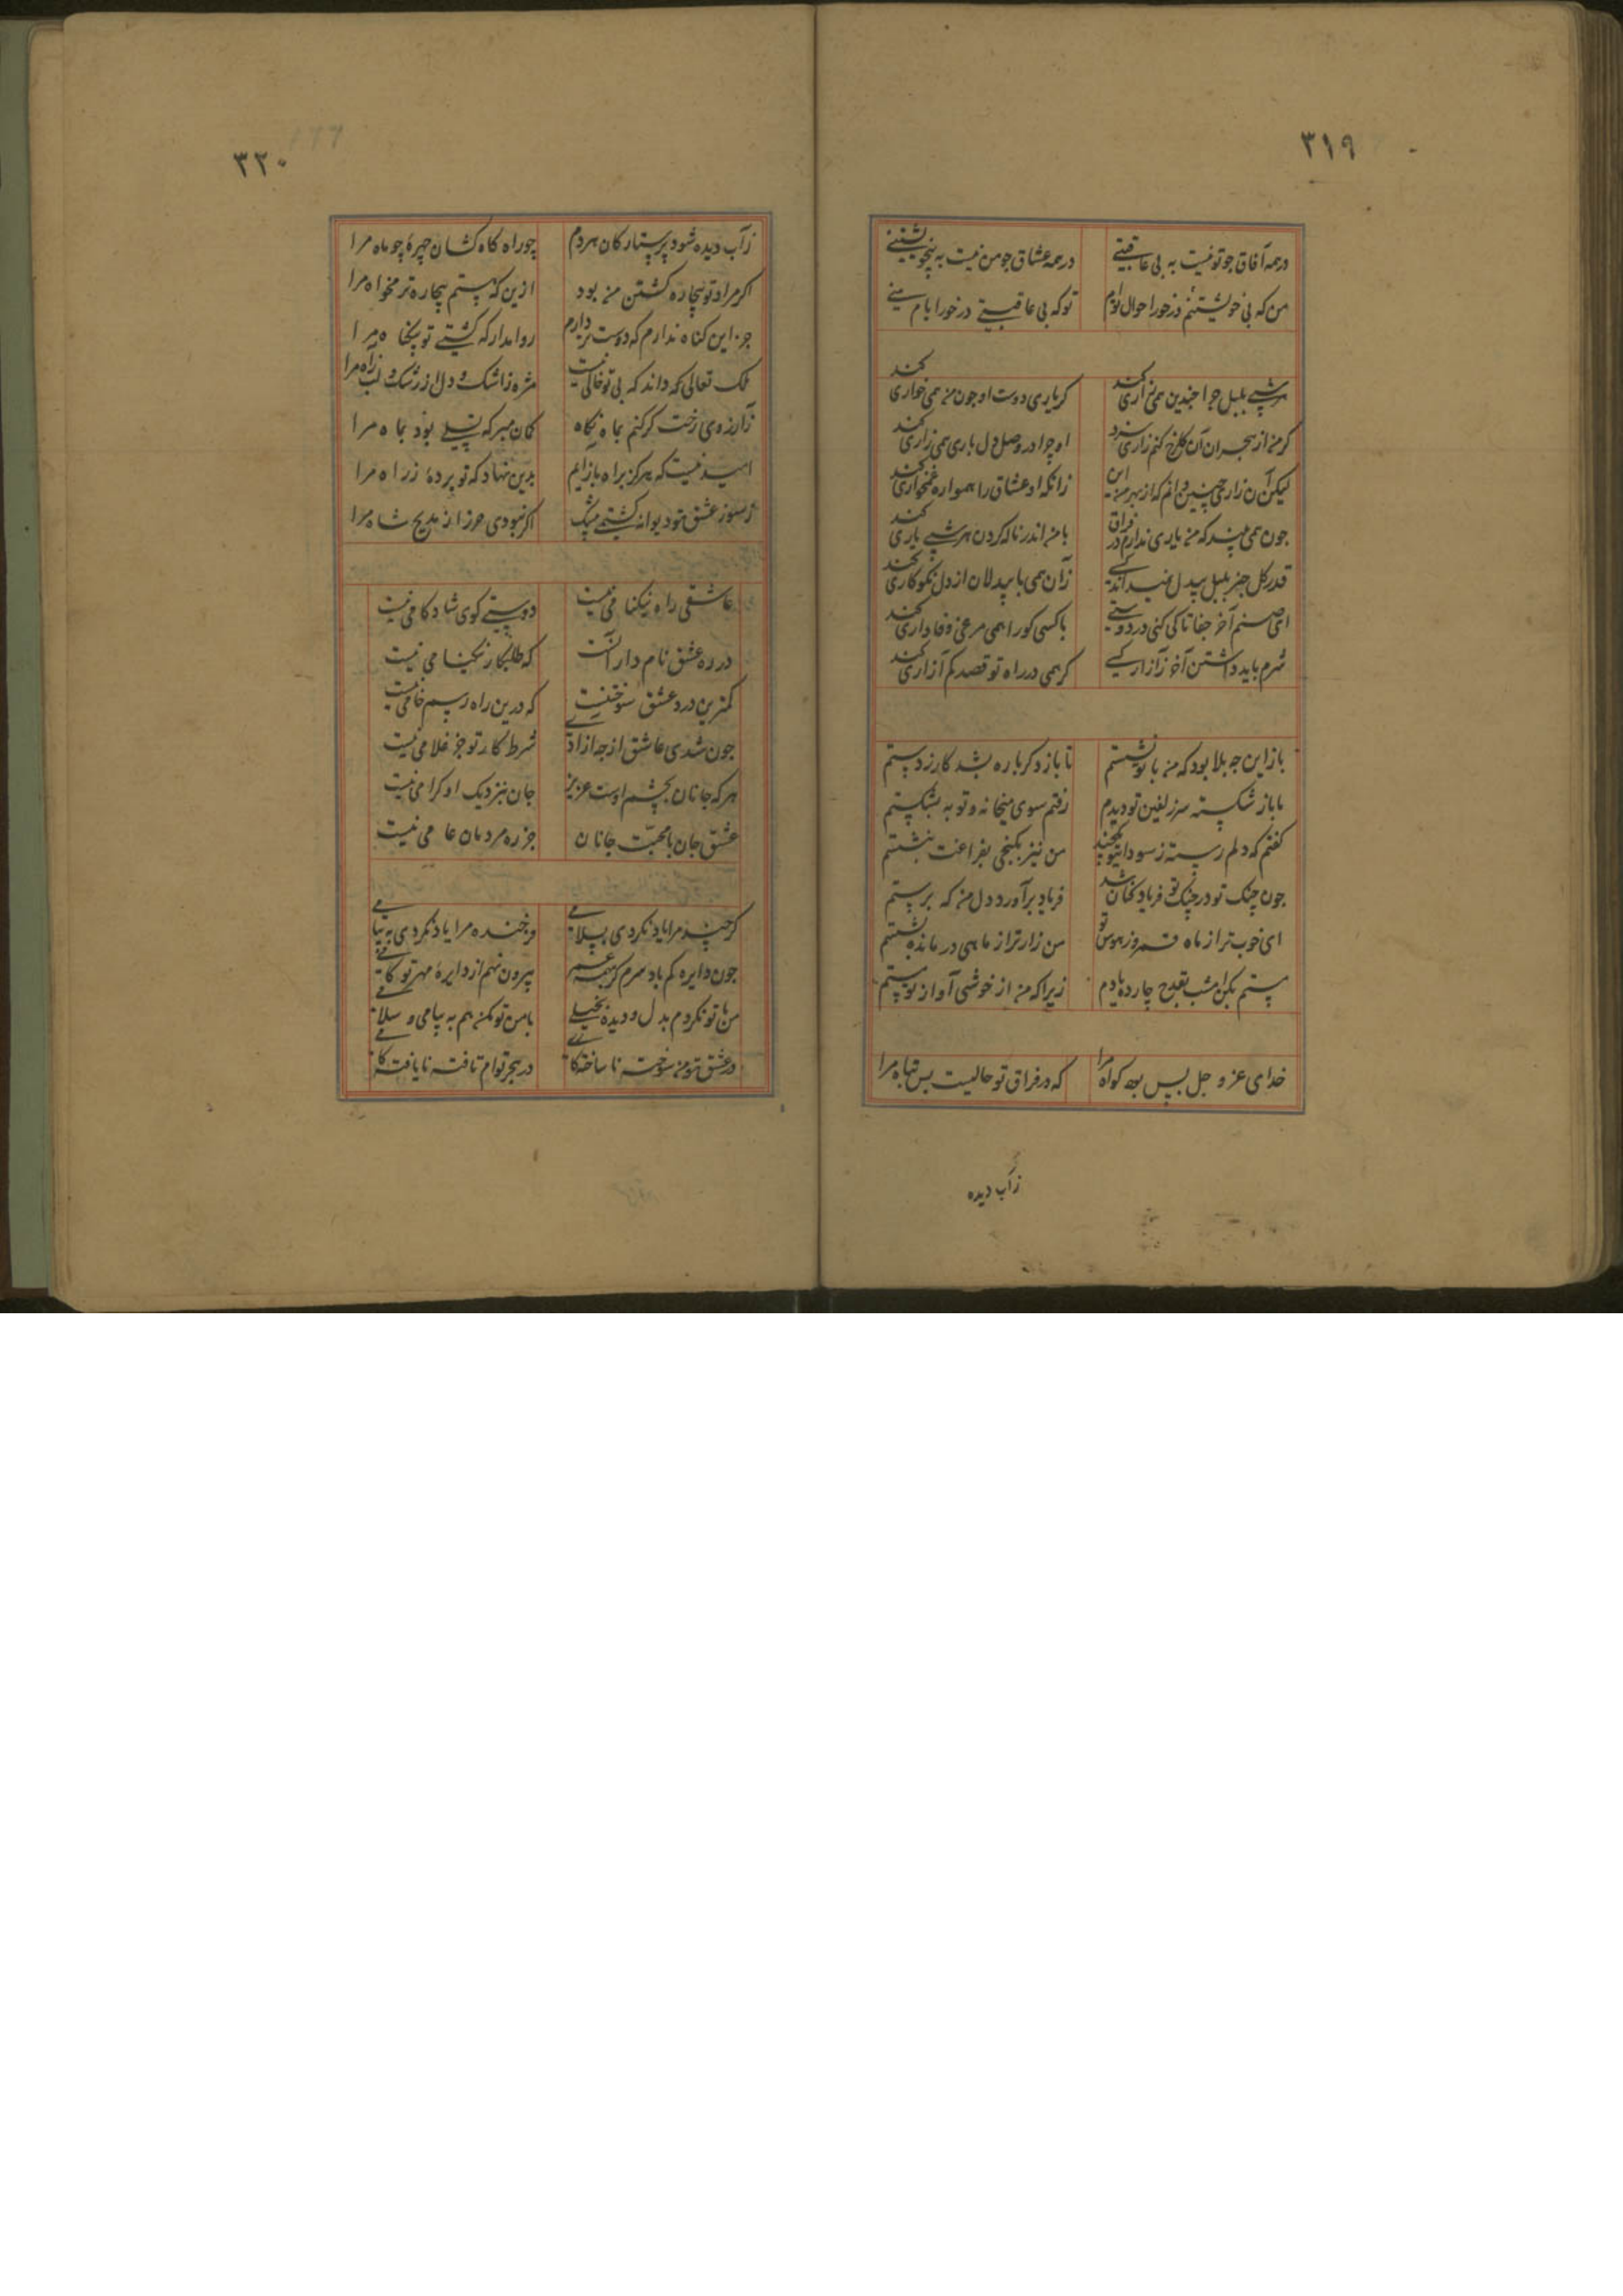 ٣١٩
درهمه آفاق جو تو نیست به بی عاقبتی
درهمه عشاق جو من نیست به بیخویشتنی
من که بی خویشتنم درخور احوال توام
تو که بی عاقبتی درخور ایام منی
هر شبی بلبل جرا جندین همی زاری کند
کر نه یاری دوست او جون من همی خواری کند
کر من از هجران آن کلرخ کنم زاری سزد
او چرا در وصل دل باری همی زاری کند
لیکن آن زاری جنین دانم که از بهر منست این
زانکه او عشاق را همواره غمخواری کند
جون همی بیند که من یاری ندارم در فراق
با من اندر ناله کردن هر شبی یاری کند
قدر کل جز بلبل بیدل نمیداند کسی
زان همی با بیدلان از دل نکوکاری کند
ای صنم آخر جفا تا کی کنی در دوستی
با کسی کو را همی مرغی وفاداری کند
شرم باید داشتن آخر ز آزار کسی
کر همی در راه تو قصد کم آزاری کند
باز این جه بلا بود که من با تو نشستم
تا باز دکر باره بشد کار ز دستم
تا باز شکسته سر زلفین تو دیدم
رفتم سوی میخانه و توبه بشکستم
کفتم که دلم رسته ز سودای تو یکچند
من نیز بکنجی بفراغت بنشستم
جون چنک تو در چنک تو فریاد کنان شد
فریاد برآورد دل من که برستم
ای خوب تر از ماه فروز هوس تو
من زار تر از ماهی در مانده بشستم
مستم بکن امشب بقدح چار ده بادم
زیرا که من از خوشی آواز تو مستم
خدای عز و جل بس بود کواه مرا
که در فراق تو حالیست بس تباه مرا
زآب دیده
٣٢٠
زآب دیده شود پر ستارکان هردم
چو راه کاه کشان چهرهٔ چو ماه مرا
اکر مراد تو بیچاره کشتن من بود
ازین که هستم بیچاره تر مخواه مرا
جز این کناه ندارم که دوستر دارم
روا مدار که کشتی تو بیکناه مرا
ملک تعالی که داند که بی تو خالی نیست
مژه ز اشک و دل از رشک و لب ز آه مرا
ز آرزوی رخت کر کنم بماه نکاه
کمان مبر که تسلی بود بماه مرا
امید نیست که هرکز براه بازایم
بدین نهاد که تو برده‌ٔ ز راه مرا
ز سوز عشق تو دیوانه کشتمی بیشک
اکر نبودی حرز از مدیح شاه مرا
عاشقی راه نیکنامی نیست
دوستی کوی شادکامی نیست
در ره عشق نام دار آنست
که طلبکار نیکنامی نیست
کمترین درد عشق سوختنیست
که درین راه رسم خامی نیست
جون شدی عاشق از جه آزادی
شرط کار تو جز غلامی نیست
هر که جانان بچشم اوست عزیز
جان بنزدیک او کرامی نیست
عشق جان با محبت جانان
جز ره مردمان عامی نیست
کر چند مرا یاد نکردی بسلامی
فرخنده مرا یاد نکردی به پیامی
جون دایره کم باد سرم کر همه عمر
بیرون نهم از دایرهٔ مهر تو کامی
من با تو نکردم بدل و دیده بخیلی
با من تو مکن هم به پیامی و سلامی
در عشق تو من سوخته ناساخته کامی
در هجر توام تافته نایافته کامی